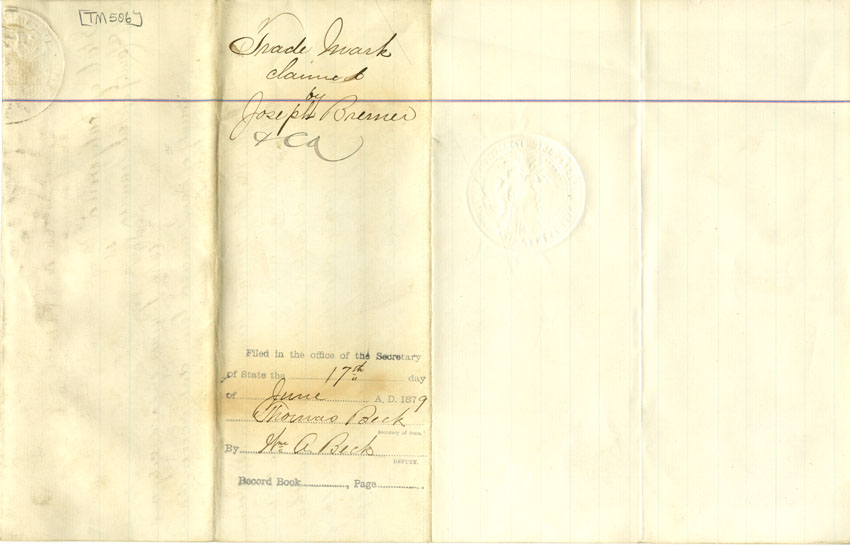 [TM506]
Trade Mark
claimed
by
Joseph Bremer
& Co
Filed in the office of the Secretary
of State the 17th day
of June A.D. 1879
Thomas Beck
Secretary of State.
By Wm A. Beck
DEPUTY.
Record Book............, Page............